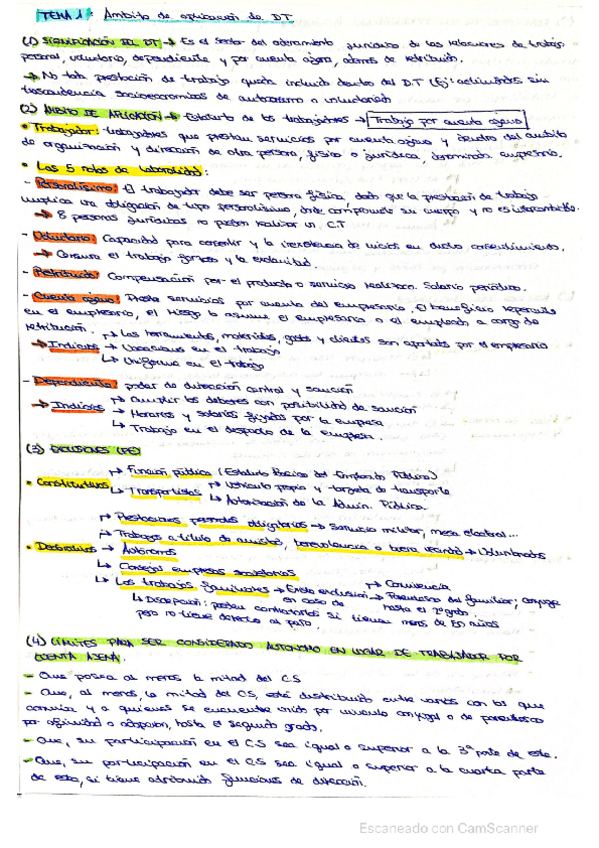 TEMA 1: Ámbito de aplicación de DT
(1) SIGNIFICACIÓN DEL DT → Es el sector del ordenamiento jurídico de las relaciones de trabajo
personal, voluntario, dependiente y por cuenta ajena, además de retribuido.
→ No toda prestación de trabajo queda incluida dentro del D.T (Ej: actividades sin
trascendencia socioeconómicas de autónomo o voluntariado
(2) ÁMBITO DE APLICACIÓN → Estatuto de los trabajadores → Trabajo por cuenta ajena
• Trabajador: trabajadores que prestan servicios por cuenta ajena y dentro del ámbito
de organización y dirección de otra persona, física o jurídica, denominada empresario.
• Las 5 notas de laboralidad:
- Personalísimo: El trabajador debe ser persona física, dado que la prestación de trabajo
implica una obligación de tipo personalísimo, donde compromete su cuerpo y no es intercambiable.
→ 8 personas jurídicas no pueden realizar un C.T
- Voluntario: Capacidad para consentir y la inexistencia de vicios en dicho consentimiento.
→ Censura el trabajo forzoso y la esclavitud.
- Retribuido: Compensación por el producto o servicio realizado. Salario periódico.
- Cuenta ajena: Presta servicios por cuenta del empresario. El beneficio repercute
en el empresario, el riesgo lo asume el empresario o el empleado a cargo de
retribución.
→ Indicios → Las herramientas, materiales, gastos y clientes son aportados por el empresario
→ Vacaciones en el trabajo
→ Uniforme en el trabajo
- Dependiente: poder de dirección control y sanción
→ Indicios → Cumplir los deberes con posibilidad de sanción
→ Horarios y salarios fijados por la empresa
→ Trabajo en el despacho de la empresa.
(3) EXCLUSIONES (PE)
• Constitutivas → Función pública (Estatuto Básico del Empleado Público)
→ Transportistas → Vehículo propio y tarjeta de transporte
→ Autorización de la Admin. Pública.
• Declarativas → Prestaciones personales obligatorias → Servicio militar, mesa electoral...
→ Trabajos a título de amistad, benevolencia o buena vecindad → Voluntariados
→ Autónomos
→ Consejos empresas societarias
→ Los trabajos familiares → Existe exclusión en caso de → Convivencia
→ Parentesco del familiar, cónyuge hasta el 2º grado.
→ Discepción: pueden contratarlos si tienen menos de 30 años
pero no tiene derecho al paro.
(4) LÍMITES PARA SER CONSIDERADO AUTÓNOMO EN LUGAR DE TRABAJADOR POR
CUENTA AJENA.
- Que posea al menos la mitad del CS
- Que, al menos, la mitad del CS, esté distribuido entre varios con los que
conviva y a quienes se encuentre unido por vínculo conyugal o de parentesco
por afinidad o adopción, hasta el segundo grado.
- Que, su participación en el CS sea igual o superior a la 3ª parte de este.
- Que, su participación en el CS sea igual o superior a la cuarta parte
de esta, si tiene atribuido funciones de dirección.
Escaneado con CamScanner